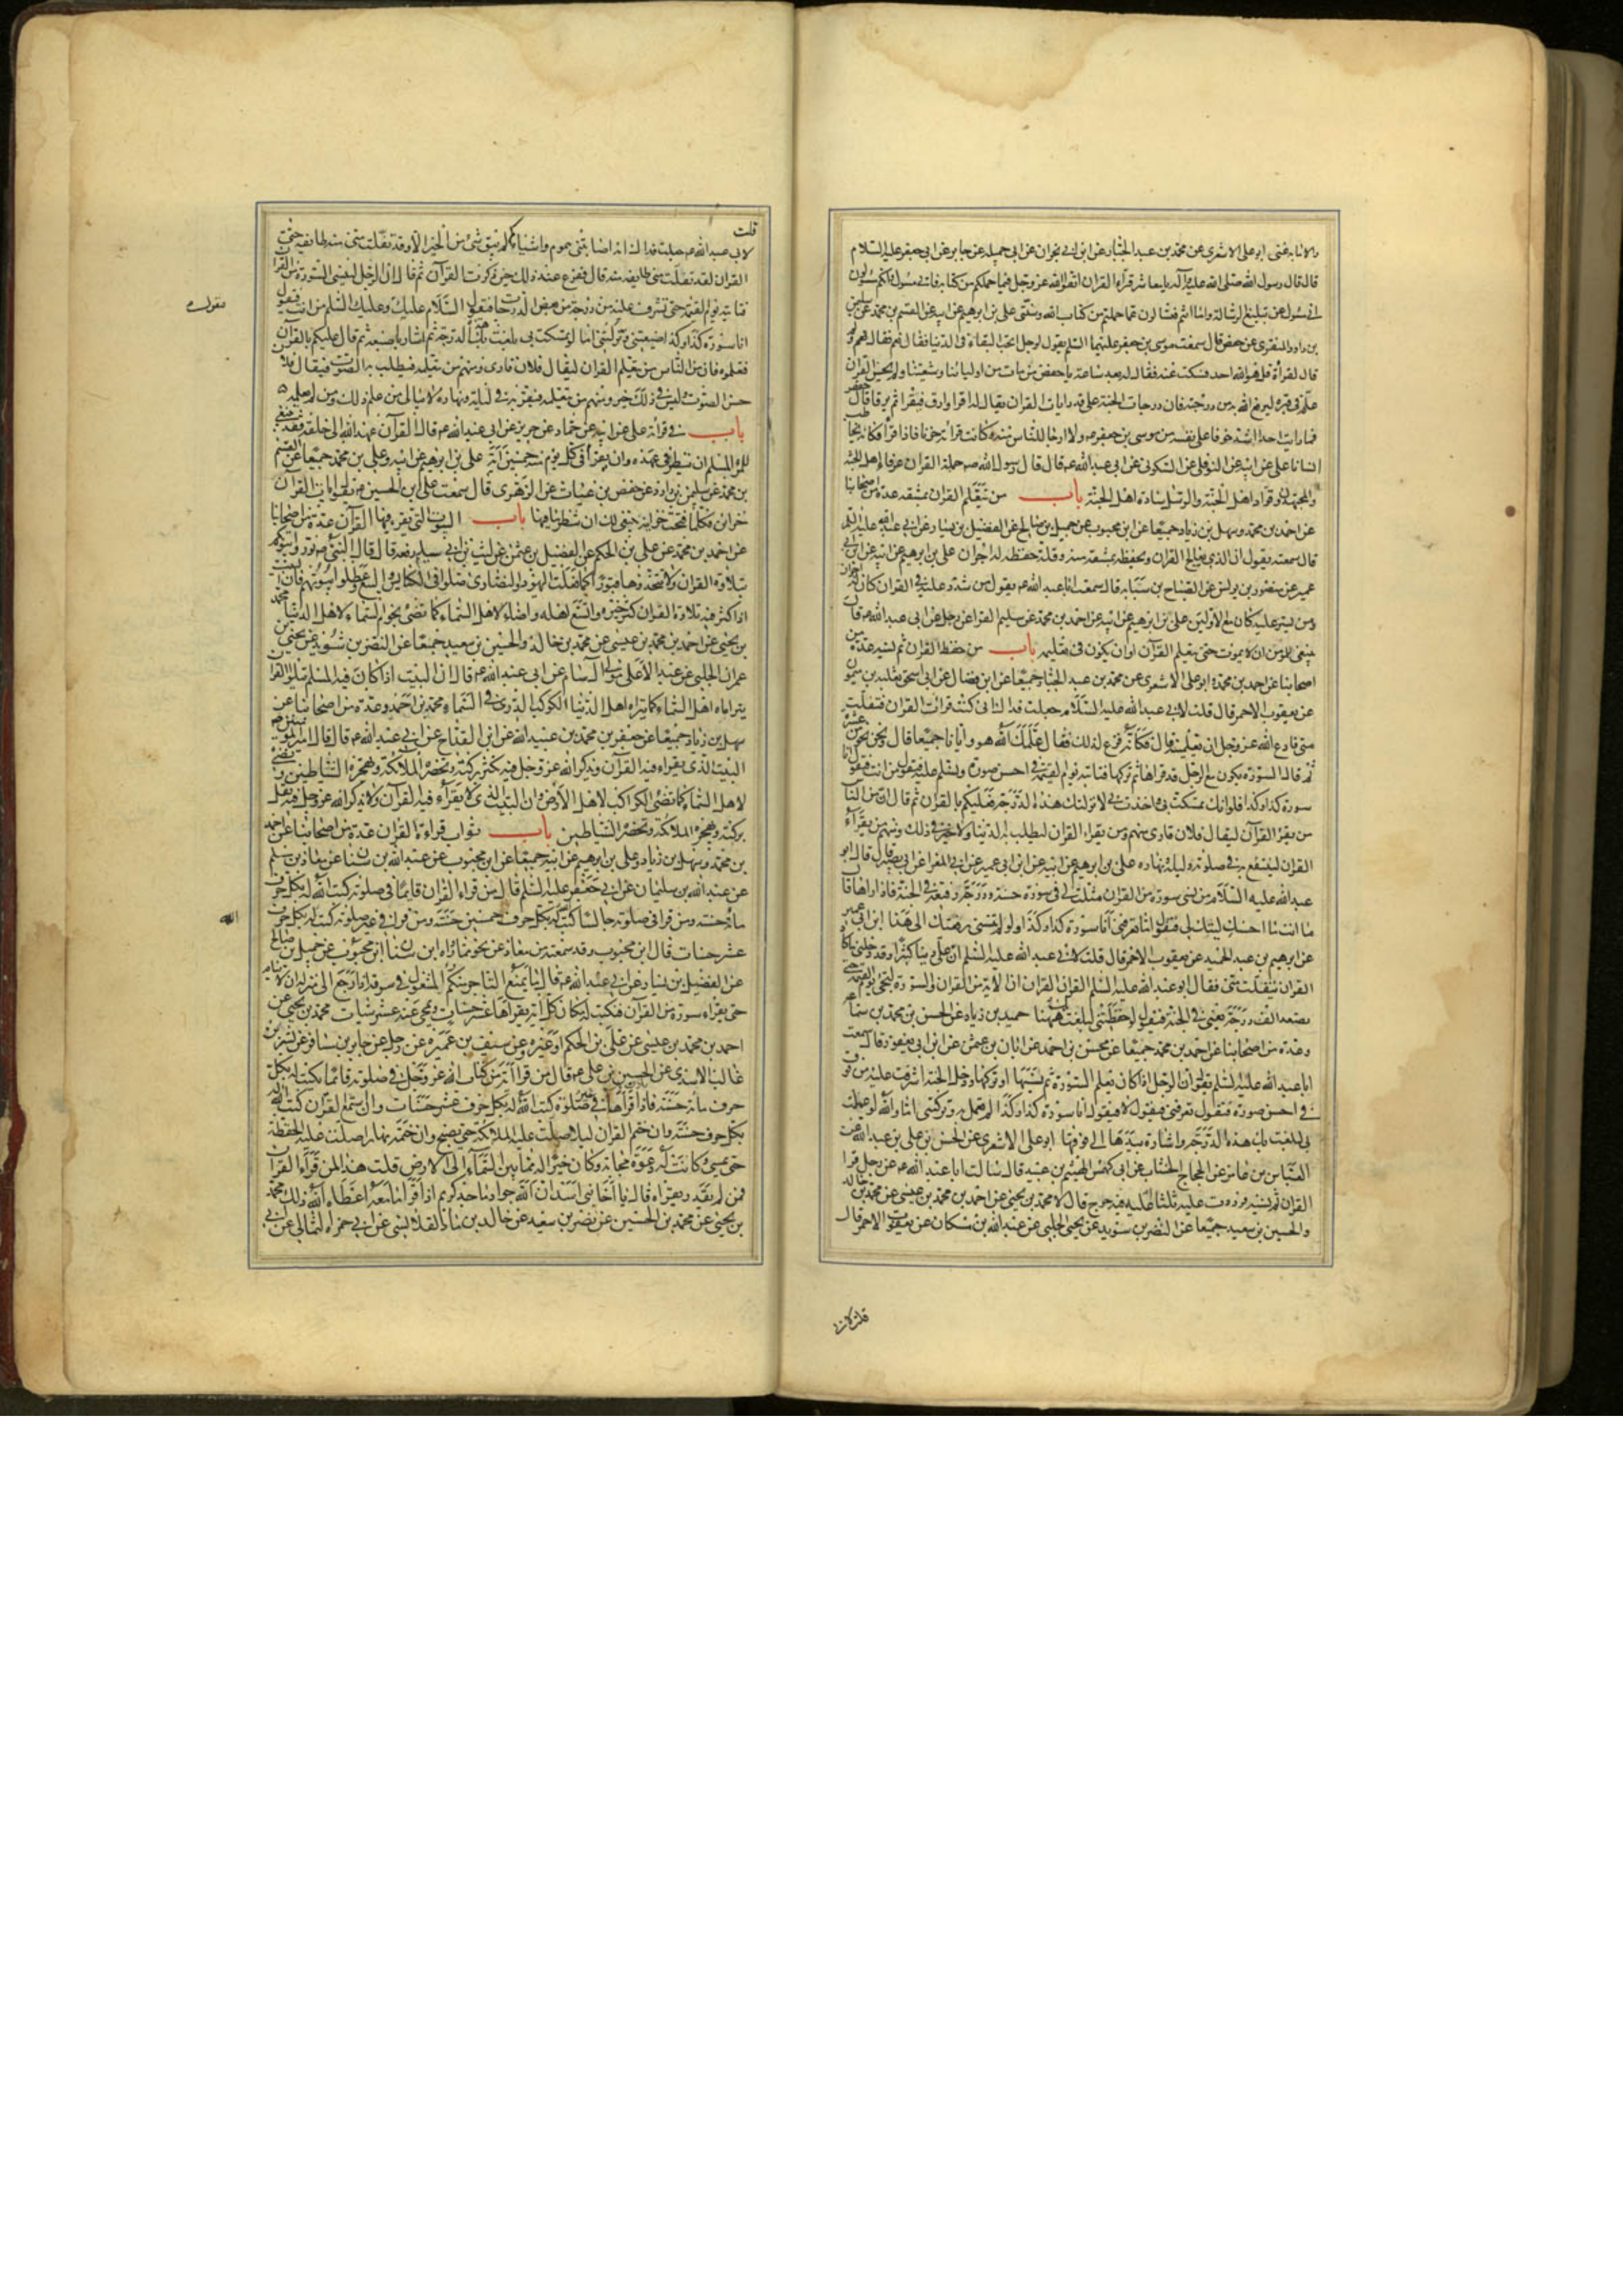 ولا نابه غنى ابو على الاشعرى عن محمد بن عبد الجبار عن ابن ابى نجران عن ابى جميله عن جابر عن ابى جعفر عليه السلام
قال قال رسول الله صلى الله عليه وآله يا معاشر قراء القران اتقوا الله عز وجل فيما حملكم من كتابه فانى مسؤل وانكم مسؤلون
انى مسؤل عن تبليغ الرسالة واما انتم فتسألون عما حملتم من كتاب الله وسنتى على بن ابرهيم عن ابيه عن القسم بن محمد عن سليمن
بن داود المنقرى عن حفص قال سمعت موسى بن جعفر عليهما السلم يقول لرجل اتحب البقاء فى الدنيا فقال نعم فقال ولم
قال لقرأة قل هو الله احد فسكت عنه فقال له بعد ساعة يا حفص من مات من اوليائنا وشيعتنا ولم يحسن القران
علم فى قبره ليرفع الله به من درجته فان درجات الجنة على قدر ايات القران يقال له اقرا وارق فيقرا ثم يرقا قال حفص
فما رايت احدا اشد خوفا على نفسه من موسى بن جعفر ولا ارجا للناس منه وكانت قرائته حزنا فاذا قرا فكانه يخاطب
انسانا على عن ابيه عن النوفلى عن السكونى عن ابى عبد الله قال قال رسول الله حملة القران عرفاء اهل الجنة
والمجتهدون قواد اهل الجنة والرسل سادة اهل الجنة باب من يتعلم القران بمشقة عدة من اصحابنا
عن احمد بن محمد وسهل بن زياد جميعا عن ابن محبوب عن جميل بن صالح عن الفضيل بن يسار عن ابى عبد الله عليه السلم
قال سمعته يقول ان الذى يعالج القران ويحفظه بمشقة منه وقلة حفظ له اجران على بن ابرهيم عن ابيه عن ابن ابى
عمير عن منصور بن يونس عن الصباح بن سيابه قال سمعت ابا عبد الله يقول من شدد عليه فى القران كان له اجران
ومن يسر عليه كان مع الاولين على بن ابرهيم عن ابيه عن احمد بن محمد عن سليم الفرا عن رجل عن ابى عبد الله قال
ينبغى للمؤمن ان لا يموت حتى يتعلم القرآن او ان يكون فى تعليمه باب من حفظ القران ثم نسيه عدة من
اصحابنا عن احمد بن محمد وابو على الاشعرى عن محمد بن عبد الجبار جميعا عن ابن فضال عن ابى اسحق ثعلبه بن ميمون
عن يعقوب الاحمر قال قلت لابى عبد الله عليه السلام جعلت فداك انى كنت قرات القران فتفلت
منى فادع الله عز وجل ان يعلمنيه قال فكانه فزع لذلك فقال علمك الله هو وايانا جميعا قال ونحن نحو من عشرة
ثم قال السورة يكون مع الرجل قد قراها ثم تركها فتاتيه يوم القيمة فى احسن صورة وتسلم عليه فيقول من انت فتقول انا
سورة كذا وكذا فلو انك تمسكت بى واخذت بى لانزلتك هذه الدرجة فعليكم بالقران ثم قال ان من الناس
من يقرا القرآن ليقال فلان قارى ومنهم من يقراء القران ليطلب به الدنيا ولا خير فى ذلك ومنهم من يقراء
القران لينتفع به فى صلوته وليله ونهاره على بن ابرهيم عن ابيه عن ابن ابى عمير عن ابى المغرا عن ابى بصير قال قال ابو
عبد الله عليه السلام من نسى سورة من القران مثلت له فى صورة حسنة ودرجة رفيعة فى الجنة فاذا راها قال
ما انت ما احسنك ليتك لى فتقول اما تعرفنى انا سورة كذا وكذا ولو لم تنسنى رفعتك الى هذا ابن ابى عمير
عن ابرهيم بن عبد الحميد عن يعقوب الاحمر قال قلت لابى عبد الله عليه السلم ان على دينا كثيرا وقد دخلنى ما كان
القران يتفلت منى فقال ابو عبد الله عليه السلم القران القران ان الاية من القران والسورة لتجئ يوم القيمة حتى
تصعد الف درجة يعنى فى الجنة فتقول لو حفظتنى لبلغت بك ههنا حميد بن زياد عن الحسن بن محمد بن سماعه
وعدة من اصحابنا عن احمد بن محمد جميعا عن محسن بن احمد عن ابان بن عثمن عن ابن ابى يعفور قال سمعت
ابا عبد الله عليه السلم يقول ان الرجل اذا كان تعلم السورة ثم نسيها او تركها ودخل الجنة اشرفت عليه من فوق
فى احسن صورة فتقول تعرفنى فيقول لا فيقول انا سورة كذا وكذا لم تعمل بى وتركتنى اما والله لو عملت
بى لبلغت بك هذه الدرجة واشارة بيدها الى فوقها ابو على الاشعرى عن الحسن بن على بن عبد الله عن
العباس بن عامر عن الحجاج الخشاب عن ابى كهمس الهيثم بن عبيد قال سالت ابا عبد الله عن رجل قرا
القران ثم نسيه فرددت عليه ثلثا اعليه فيه حرج قال لا محمد بن يحيى عن احمد بن محمد بن عيسى عن محمد بن خالد
والحسين بن سعيد جميعا عن النضر بن سويد عن يحيى الحلبى عن عبد الله بن مسكان عن يعقوب الاحمر قال
قلت
لابى عبد الله جعلت فداك انه اصابتنى هموم واشياء لم يبق شئ من الخير الا وقد تفلت منى منه طائفة حتى
القران لقد تفلت منى طايفه منه قال ففزع عند ذلك حين ذكرت القرآن ثم قال ان الرجل لينسى السورة من القران
فتاتيه يوم القيمة حتى تشرف عليه من درجة من بعض الدرجات فتقول السلام عليك وعليك السلم من انت فيقول
انا سورة كذا وكذا ضيعتنى وتركتنى اما لو تمسكت بى بلغت بك هذه الدرجة ثم اشار باصبعه ثم قال عليكم بالقرآن
فتعلموه فان من الناس من يتعلم القران ليقال فلان قارى ومنهم من يتعلمه فيطلب به الصوت فيقال فلان
حسن الصوت وليس فى ذلك خير ومنهم من يتعلمه فيقوم به فى ليله ونهاره لا يبالى من علم ذلك ومن لم يعلمه
باب فى قرائته على عن ابيه عن حماد عن حريز عن ابى عبد الله قال القرآن عهد الله الى خلقه فقد ينبغى
للمرء المسلم ان ينظر فى عهده وان يقرأ فى كل يوم منه خمسين آية على بن ابرهيم عن ابيه وعلى بن محمد جميعا عن القسم
بن محمد عن سليمن بن داود عن حفص بن غياث عن الزهرى قال سمعت على ابن الحسين يقول ايات القران
خزائن فكلما فتحت خزانة ينبغى لك ان تنظر ما فيها باب البيوت التى يقرء فيها القرآن عدة من اصحابنا
عن احمد بن محمد عن على بن الحكم عن الفضيل بن عثمن عن ليث بن ابى سليم رفعه قال قال النبى نوروا بيوتكم
بتلاوة القران ولا تتخذوها قبورا كما فعلت اليهود والنصارى صلوا فى الكنايس والبيع وعطلوا بيوتهم فان البيت
اذا كثر فيه تلاوة القران كثر خيره واتسع اهله واضاء لاهل السماء كما تضئ نجوم السماء لاهل الدنيا محمد
بن يحيى عن احمد بن محمد بن عيسى عن محمد بن خالد والحسين بن سعيد جميعا عن النضر بن سويد عن يحيى بن
عمران الحلبى عن عبد الاعلى مولى آل سام عن ابى عبد الله قال ان البيت اذا كان فيه المسلم يتلو القران
يتراياه اهل السماء كما يتراء اهل الدنيا الكوكب الدرى فى السماء محمد بن احمد وعدة من اصحابنا عن
سهل بن زياد جميعا عن جعفر بن محمد بن عبيد الله عن ابن القداح عن ابى عبد الله قال قال امير المؤمنين
البيت الذى يقراء فيه القرآن ويذكر الله عز وجل فيه تكثر بركته وتحضره الملائكة وتهجره الشياطين ويضئ
لاهل السماء كما تضئ الكواكب لاهل الارض وان البيت الذى لا يقرأء فيه القرآن ولا يذكر الله عز وجل فيه تقل
بركته وتهجره الملائكة وتحضره الشياطين باب ثواب قراءة القران عدة من اصحابنا عن احمد
بن محمد وسهل بن زياد وعلى بن ابرهيم عن ابيه جميعا عن ابن محبوب عن عبد الله بن سنان عن معاذ بن مسلم
عن عبد الله بن سليمان عن ابى جعفر عليه السلم قال من قراء القران قائما فى صلوته كتب الله له بكل حرف
مائة حسنة ومن قرا فى صلوته جالسا كتب الله له بكل حرف خمسين حسنة ومن قرا فى غير صلوته كتب له بكل حرف
عشر حسنات قال ابن محبوب وقد سمعته من معاذ عن نحو مما رواه ابن سنان ابن محبوب عن جميل بن صالح
عن الفضيل بن يسار عن ابى عبد الله قال ما يمنع التاجر منكم المشغول فى سوقه اذا رجع الى منزله ان لا ينام
حتى يقراء سورة من القرآن فتكتب له مكان كل اية يقراها عشر حسنات ويمحى عنه عشر سيئات محمد بن يحيى عن
احمد بن محمد بن عيسى عن على بن الحكم او غيره عن سيف بن عميره عن رجل عن جابر بن مسافر عن بشر بن
غالب الاسدى عن الحسين بن على قال من قرا آية من كتاب الله عز وجل فى صلوته قائما يكتب له بكل
حرف مائة حسنة فاذا قراها فى غير صلوة كتب الله له بكل حرف عشر حسنات وان استمع القران كتب الله له
بكل حرف حسنة وان ختم القران ليلا صلت عليه الملائكة حتى يصبح وان ختمه نهارا صلت عليه الحفظة
حتى يمسى وكانت له دعوة مجابة وكان خيرا له مما بين السماء الى الارض قلت هذا لمن قرآء القران
فمن لم يقرء قال يا اخا بنى اسد ان الله جواد ماجد كريم اذا قرأ ما معه اعطاه الله ذلك محمد
بن يحيى عن محمد بن الحسين عن نضر بن سعيد عن خالد بن ماد القلانسى عن ابى حمزه الثمالى عن ابى
الله